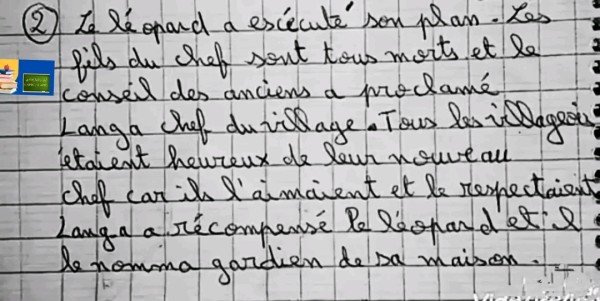 ② Le léopard a exécuté son plan. Les
fils du chef sont tous morts et le
conseil des anciens a proclamé
Langa chef du village. Tous les villageois
étaient heureux de leur nouveau
chef car ils l'aimaient et le respectaient
Langa a récompensé le léopard et il
le nomma gardien de sa maison.